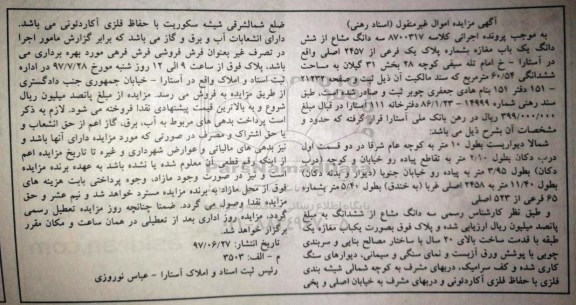 آگهی مزایده اموال غیرمنقول (اسناد رهنی)
به موجب پرونده اجرائی کلاسه ۸۷۰۰۳۱۷ سه دانگ مشاع از شش
دانگ یک باب مغازه بشماره پلاک یک فرعی از ۲۴۵۷ اصلی واقع
در آستارا - خ امام تله سیفی کوچه ۲۸ بخش ۳۱ گیلان به مساحت
ششدانگی ۶۰/۵۴ مترمربع که سند مالکیت آن ذیل ثبت و صفحه ۲۱۲۳۲
- ۱۵۱ دفتر ۱۵۱ بنام هادی جعفری چوبر ثبت و صادر شده است. طبق
سند رهنی شماره ۱۴۹۹۹ - ۸۶/۱۱/۲۳ دفترخانه ۱۱۱ آستارا در قبال مبلغ
۳۹۹/۰۰۰/۰۰۰ ریال در رهن بانک ملی آستارا قرار گرفته که حدود و
مشخصات آن بشرح ذیل می‌باشد:
شمالا دیواریست بطول ۱۰ متر به کوچه عام شرقا در دو قسمت اول
درب دکان بطول ۲/۱۰ متر به تقاطع پیاده رو خیابان و کوچه (درب
دکان) بطول ۳/۹۵ متر به پیاده رو خیابان جنوبا (دیواریست دکان)
بطول ۱۱/۴۰ متر به ۲۴۵۸ اصلی غربا (به خندق) بطول ۵/۴۰ متر بشماره
۶۵ فرعی از ۵۲۳ اصلی
و طبق نظر کارشناس رسمی سه دانگ مشاع از ششدانگ به مبلغ
پانصد میلیون ریال ارزیابی شده و پلاک فوق بصورت یک باب مغازه یک
طبقه با قدمت ساخت بالای ۲۰ سال با ساختار مصالح بنایی و سربندی
چوبی با پوشش ورق آزبست و نمای سنگی و سیمانی، دیوارهای سنگ
کاری شده و کف سرامیک، دربهای مشرف به کوچه شمالی شیشه بندی
فلزی با حفاظ فلزی آکاردئونی و دربهای مشرف به خیابان اصلی و پخی
ضلع شمالشرقی شیشه سکوریت با حفاظ فلزی آکاردئونی می باشد.
دارای انشعابات آب و برق و گاز می باشد که برابر گزارش مامور اجرا
در تصرف غیر بعنوان فرش فروشی فرش فرهی مورد بهره برداری می
باشد. پلاک فوق از ساعت ۹ الی ۱۲ روز شنبه مورخ ۹۷/۷/۲۸ در اداره
ثبت اسناد و املاک واقع در آستارا - خیابان جمهوری جنب دادگستری
از طریق مزایده به فروش می رسد. مزایده از مبلغ پانصد میلیون ریال
شروع و به بالاترین قیمت پیشنهادی نقدا فروخته می شود. لازم به ذکر
است پرداخت بدهی های مربوط به آب، برق، گاز اعم از حق انشعاب و
یا حق اشتراک و مصرف در صورتی که مورد مزایده دارای آنها باشد و
نیز بدهی های مالیاتی و عوارض شهرداری و غیره تا تاریخ مزایده اعم
از اینکه رقم قطعی آن معلوم شده یا نشده باشد به عهده برنده مزایده
است و نیز در صورت وجود مازاد، وجوه پرداختی بابت هزینه های
فوق از محل مازاد به برنده مزایده مسترد خواهد شد و نیم عشر و حق
مزایده نقدا وصول می گردد. ضمنا چنانچه روز مزایده تعطیل رسمی
گردد، مزایده روز اداری بعد از تعطیلی در همان ساعت و مکان مقرر
برگزار خواهد شد.
تاریخ انتشار: ۹۷/۰۶/۲۷
م - الف: ۳۵۰۳
رئیس ثبت اسناد و املاک آستارا - عباس نوروزی